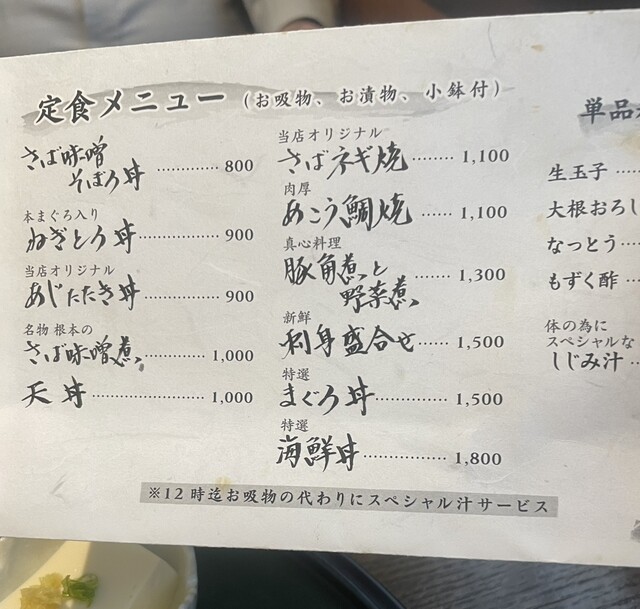 定食メニュー（お吸物、お漬物、小鉢付）
さば味噌
そぼろ丼 ………… 800
本まぐろ入り
ねぎとろ丼 ………… 900
当店オリジナル
あじたたき丼 ………… 900
名物 根本の
さば味噌煮 ………… 1,000
天丼 ………… 1,000
当店オリジナル
さばネギ焼 ……… 1,100
肉厚
あこう鯛焼 …… 1,100
真心料理
豚角煮と
野菜煮 …… 1,300
新鮮
刺身盛合せ …… 1,500
特選
まぐろ丼 ………… 1,500
特選
海鮮丼 ………… 1,800
※12時迄お吸物の代わりにスペシャル汁サービス
単品
生玉子 ……
大根おろし
なっとう ……
もずく酢 ……
体の為に
スペシャルな
しじみ汁 ……